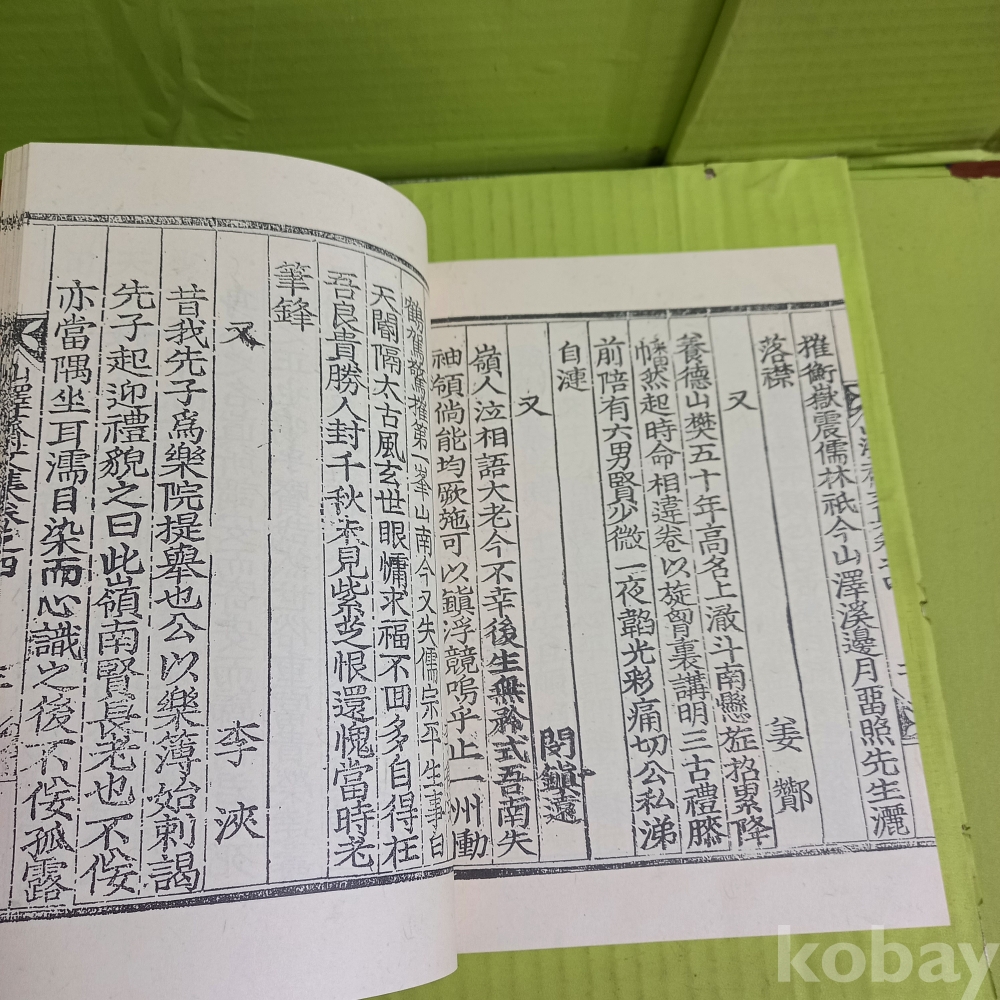 摧衡嶽震儒林祇今山澤溪邊月畱照先生灑
落襟
又 姜酇
養德山樊五十年高名上澈斗南懸旌招累降
幡然起時命相違卷以旋胷裏講明三古禮膝
前陪有六男賢少微一夜韜光彩痛切公私涕
自漣
又 閔鎭遠
嶺人泣相語大老今不幸後生無矜式吾南失
袖領倘能均厥施可以鎭浮競嗚乎止一州慟
鶴駕驚摧第一峯山南今又失儒宗平生事白
天閽隔太古風玄世眼慵求福不回多自得在
吾良貴勝人封千秋未見紫芝恨還愧當時老
筆鋒
又 李浹
昔我先子爲樂院提舉也公以樂簿始刺謁
先子起迎禮貌之曰此嶺南賢員老也不佞
亦當隅坐耳濡目染而心識之後不佞孤露
山澤齋文集卷之四
kobay